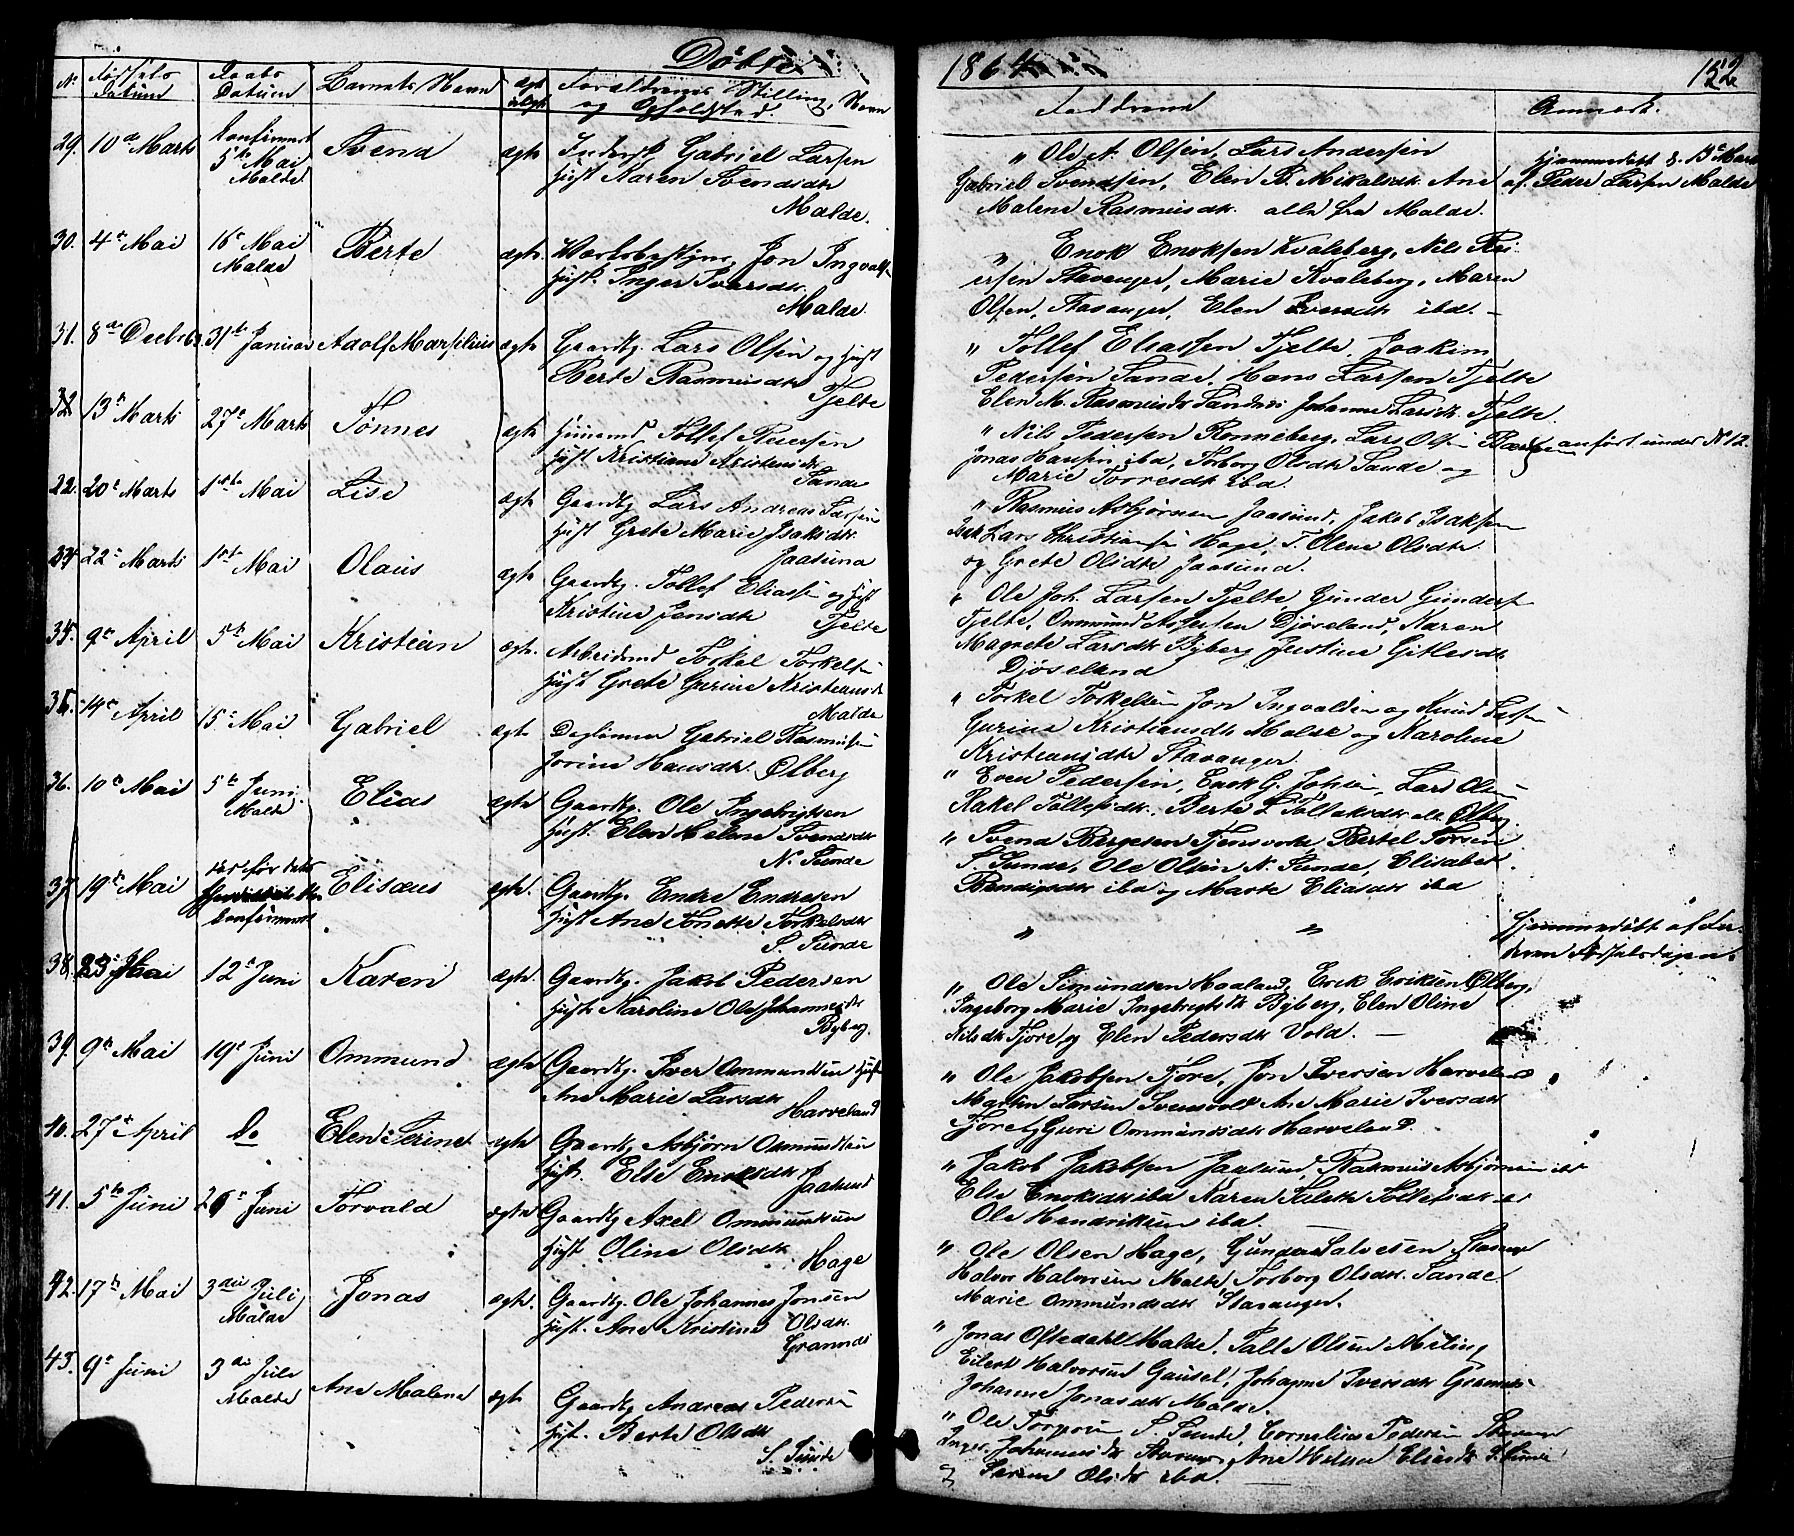 Døbte
1864
No
Fødsels Datum
Daabs Datum
Barnets Navn
ægt uægt
Forældrenes Stilling, Navn
og Opholdsted.
Fadderne
Anmærk.
29. 10de Marts
Confirmert 5te Mai Malde
Svend
ægte
Gabriel Larsen
Hust Karen Svendsdtr
Malde.
" Ole A. Olsen, Lars Andersen
Gabriel Svendsen, Elen B. Mikalsdtr. Ane
Malene Rasmusdtr. alle fra Malde.
Hjemmedøbt d. 13de Marts
af Peder Larsen Malde
30. 4de Mai
16de Mai Malde
Berte
ægte.
Jon Ingvalds.
Hust. Inger Iversdtr.
Malde.
" Enok Enoksen Kvaleberg, Nils Rei-
ersen Stavanger, Marie Kvaleberg, Maren
Olsen, Stavanger, Elen Iversdtr ibd. -
31. 8de Decbr 63
31te Januar
Adolf Marselius
ægte
Gaardbg. Lars Olsen og Hust
Berte Rasmusdtr
Tjelte
" Tollef Eliassen Tjelte, Joakim
Pedersen Sande, Hans Larsen Tjelte
Elen M. Rasmusdtr Sande, Johanne Larsdtr. Tjelte.
32 13de Marts
27de Marts
Tønnes
ægte
Huusmd. Tollef Reiersen
Hust Kristiane Kristensdtr
Sande
" Nils Pedersen Rønneberg, Lars Olsen
Jonas Hansen ibd, Torborg Olsdtr Sande og
Marie Torresdtr ibd.
anført under No 12.
22. 20de Marts
1ste Mai
Lise
ægte
Gaardbg Lars Andreas Larsen
Hust Grete Marie Isaksdtr.
Jaasund
" Rasmus Asbjørnsen Jaasund, Jakob Isaksen
Lars Christiansen Hage, T. Olene Olsdtr
og Grete Olsdtr Jaasund.
22de Marts
1ste Mai
Olaus
ægte
Gaardbg. Tollef Eliassen og Hust
Kristine Jensdtr
Tjelte
" Ole Joh. Larsen Tjelte, Gunder Gunders.
Tjelte, Ommund Djøseland, Karen
Magrete Larsdtr Byberg Justine Gitlesdtr
Djøseland
35. 9de April
5te Mai
Kristian
ægte.
Arbeidsmd Torkel Torkelsen
Hust Grete Gurine Kristiansdtr
Malde
" Torkel Torkelsen Jon Ingvaldsen og Knud
Gurine Kristiansdtr Malde og Karoline
Kristiansdtr Stavanger.
14de April
15de Mai
Gabriel
ægte
Daglønner Gabriel Rasmussen
Jorine Hansdtr. Ølberg
" Even Pedersen, Enok G. Lars Olsen
Rakel Tollefsdtr. Berte T. Tollaksdtr alle Ølberg.
36. 10de Mai
5te Juni. Malde
Elias
ægte
Gaardbg. Ole Ingebrigtsen
Hust. Elen Helene Svendsdtr
N. Sunde
" Svend Børgesen Tjensvold, Bertel
S. Sunde, Ole Olsen N. Sunde, Elisabet
Bendixsdtr ibd og Marte Eliasdtr ibd
37. 19de Mai
confirmert
Elisæus
ægte.
Gaardbg. Endre Endresen
Hust Ane Tonette Torkelsdtr
S. Sunde
" "
Hjemmedøbt af
Fødselsdagen.
38. 23de Mai
12te Juni
Karen
ægte.
Gaardbg. Jakob Pedersen
Hust Karoline Johannesdtr
Byberg.
" Ole Simundsen Haaland, Erik Eriksen Ølberg,
Ingeborg Marie Ingebrigtsdtr Byberg, Elen Oline
Nilsdtr Fjøre og Elen Pedersdtr Vold. -
39. 9de Mai
19de Juni
Ommund
ægte
Gaardbg. Iver Ommundsen Hust
Ane Marie Larsdtr
Harveland
" Ole Jakobsen Fjøre, Jon Iversen Harveland
Martin Larsen Ane Marie Iversdtr
Fjøre, Guri Ommundsdtr Harveland.
40. 27de April
Do
Elen Serine
ægte
Gaardbg Asbjørn Osmundsen
Hust. Else Enoksdtr
Jaasund
" Jakob Jakobsen Jaasund, Rasmus Asbjørnsen ibd
Else Enoksdtr ibd Karen Tollefsdtr
Ole Hendriksen ibd.
41. 5te Juni
26de Juni
Torvald
ægte
Gaardbg Axel Ommundsen
Hust. Oline Olsdtr.
Hage
" Ole Olsen Hage, Gunder Salvesen Stavanger
Halvor Halvorsen Malde Torborg Olsdtr. Sande
Marie Ommundsdtr Stavanger.
42. 17de Mai
3die Juli Malde
Jonas
ægte.
Gaardbg. Ole Johannes Jonsen
Hust. Ane Kristine Olsdtr.
Grannes
" Jonas Oftedahl Malde, Talle Olsen Meling
Eilert Halvorsen Gausel, Johanne Iversdtr Grannes
Johanne Jonasdtr Malde.
43. 9de Juni
3die Juli Malde
Ane Malene
ægte
Gaardbg Andreas Pedersen
Hust. Berte Olsdtr
S. Sunde
" Ole Torgersen S. Sunde, Cornelius Pedersen Stavanger
Inger Johannesdtr Stavanger, Ane Helene Eliasdtr S. Sunde
Olsdtr ibd. -